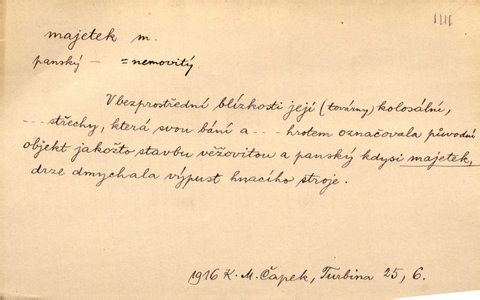 majetek m.
panský — = nemovitý.
V bezprostřední blízkosti její (továrny) kolosální,
--- střechy, která svou bání a --- hrotem označovala původní
objekt jakožto stavbu věžovitou a panský kdysi majetek,
drze dmychala výpust hnacího stroje.
1916 K. M. Čapek, Turbina 25, 6.